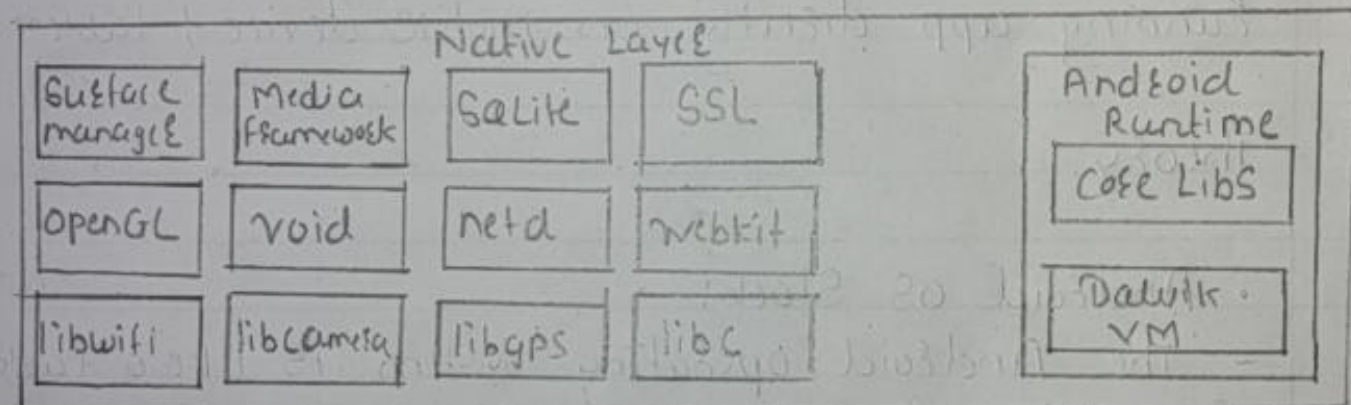 Native Layer
Surface manager
Media Framework
SQLite
SSL
OpenGL
void
netd
Webkit
libwifi
libcamera
libgps
libc
Android Runtime
Core Libs
Dalvik VM.